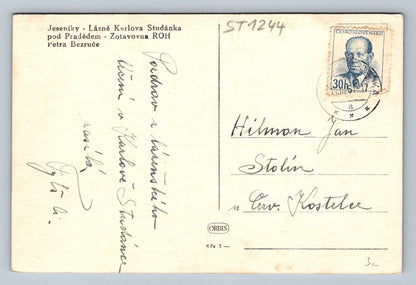 Jeseníky - Lázně Karlova Studánka
pod Pradědem - Zotavovna ROH
Petra Bezruče
ST1244
ČESKOSLOVENSKO
30h
Pozdrav z lázeňského
léčení v Karlově Studánce
zasílá
Hilman Jan
Stolín
u Červ. Kostelce
ORBIS
3-